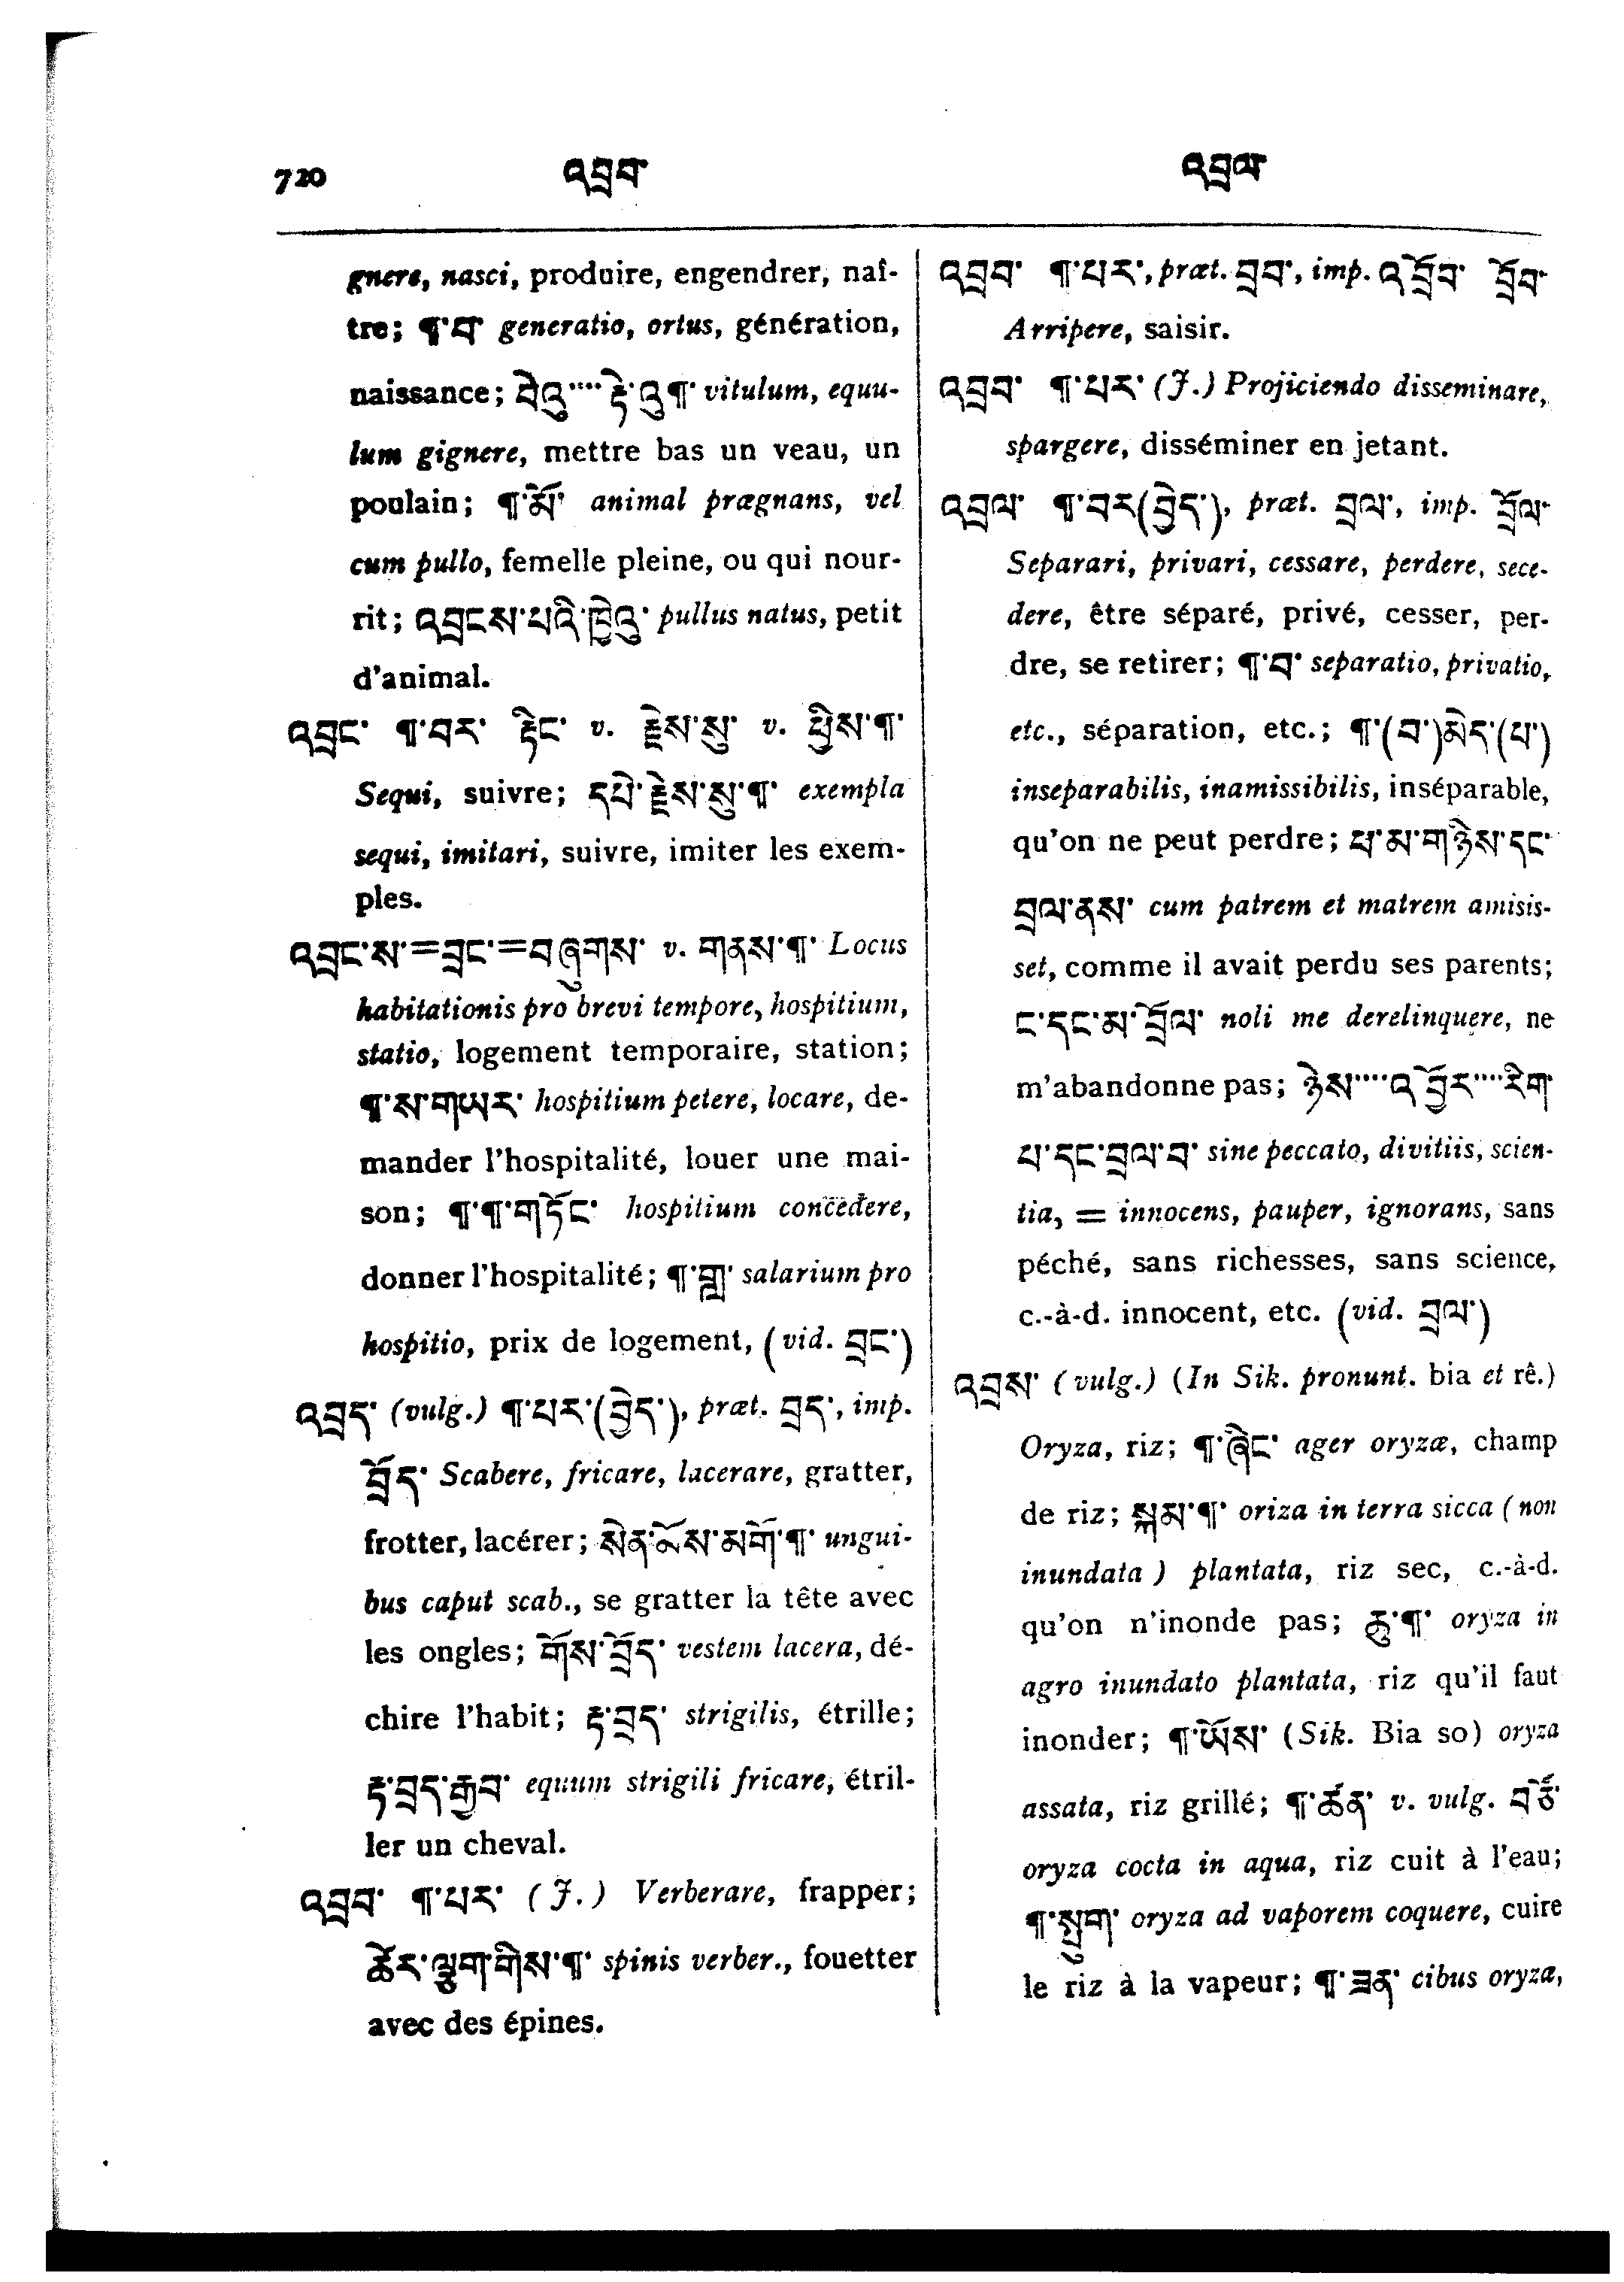 720 འབྲབ་ འབྲལ་
gnere, nasci, produire, engendrer, naî-
tre; ¶་བ་ generatio, ortus, génération,
naissance; བེའུ་་་་རྟེ་འུ¶་ vitulum, equu-
lum gignere, mettre bas un veau, un
poulain; ¶་མོ་ animal prægnans, vel
cum pullo, femelle pleine, ou qui nour-
rit; འབྲངས་པའི་ཁྱེའུ་ pullus natus, petit
d'animal.
འབྲང་ ¶་བར་ རྟིང་ v. རྗེས་སུ་ v. ཕྱིས་¶་
Sequi, suivre; དཔེ་རྗེས་སུ་¶་ exempla
sequi, imitari, suivre, imiter les exem-
ples.
འབྲང་ས་=བྲང་=བཞུགས་ v. གནས་¶་ Locus
habitationis pro brevi tempore, hospitium,
statio, logement temporaire, station;
¶་ས་གཡར་ hospitium petere, locare, de-
mander l'hospitalité, louer une mai-
son; ¶་¶་གཏོང་ hospitium concedere,
donner l'hospitalité; ¶་གླ་ salarium pro
hospitio, prix de logement, (vid. བྲང་)
འབྲད་ (vulg.) ¶་པར་(བྱེད་), præt. བྲད་, imp.
བྲོད་ Scabere, fricare, lacerare, gratter,
frotter, lacérer; སེན་མོས་མགོ་¶་ ungui-
bus caput scab., se gratter la tête avec
les ongles; གོས་བྲོད་ vestem lacera, dé-
chire l'habit; རྟ་བྲད་ strigilis, étrille;
རྟ་བྲད་རྒྱབ་ equum strigili fricare, étril-
ler un cheval.
འབྲབ་ ¶་པར་ (J.) Verberare, frapper;
ཚེར་ལྕུག་གིས་¶་ spinis verber., fouetter
avec des épines.
འབྲབ་ ¶་པར་, præt. བྲབ་, imp. འབྲོབ་ བྲོབ་
Arripere, saisir.
འབྲབ་ ¶་པར་ (J.) Projiciendo disseminare,
spargere, disséminer en jetant.
འབྲལ་ ¶་བར(བྱེད་), præt. བྲལ་, imp. བྲོལ་
Separari, privari, cessare, perdere, sece-
dere, être séparé, privé, cesser, per-
dre, se retirer; ¶་བ་ separatio, privatio,
etc., séparation, etc.; ¶་(བ་)མེད་(པ་)
inseparabilis, inamissibilis, inséparable,
qu'on ne peut perdre; ཕ་མ་གཉེས་དང་
བྲལ་ནས་ cum patrem et matrem amisis-
set, comme il avait perdu ses parents;
ང་དང་མ་བྲོལ་ noli me derelinquere, ne
m'abandonne pas; ཉེས་་་་འབྱོར་་་་རིག་
པ་དང་བྲལ་བ་ sine peccato, divitiis, scien-
tia, = innocens, pauper, ignorans, sans
péché, sans richesses, sans science,
c.-à-d. innocent, etc. (vid. བྲལ་)
འབྲས་ (vulg.) (In Sik. pronunt. bia et rê.)
Oryza, riz; ¶་ཞིང་ ager oryzæ, champ
de riz; སྐམ་¶་ oriza in terra sicca (non
inundata) plantata, riz sec, c.-à-d.
qu'on n'inonde pas; ཆུ་¶་ oryza in
agro inundato plantata, riz qu'il faut
inonder; ¶་ཡོས་ (Sik. Bia so) oryza
assata, riz grillé; ¶་ཚན་ v. vulg. བཙོ་
oryza cocta in aqua, riz cuit à l'eau;
¶་སྲུག་ oryza ad vaporem coquere, cuire
le riz à la vapeur; ¶་ཟན་ cibus oryza,